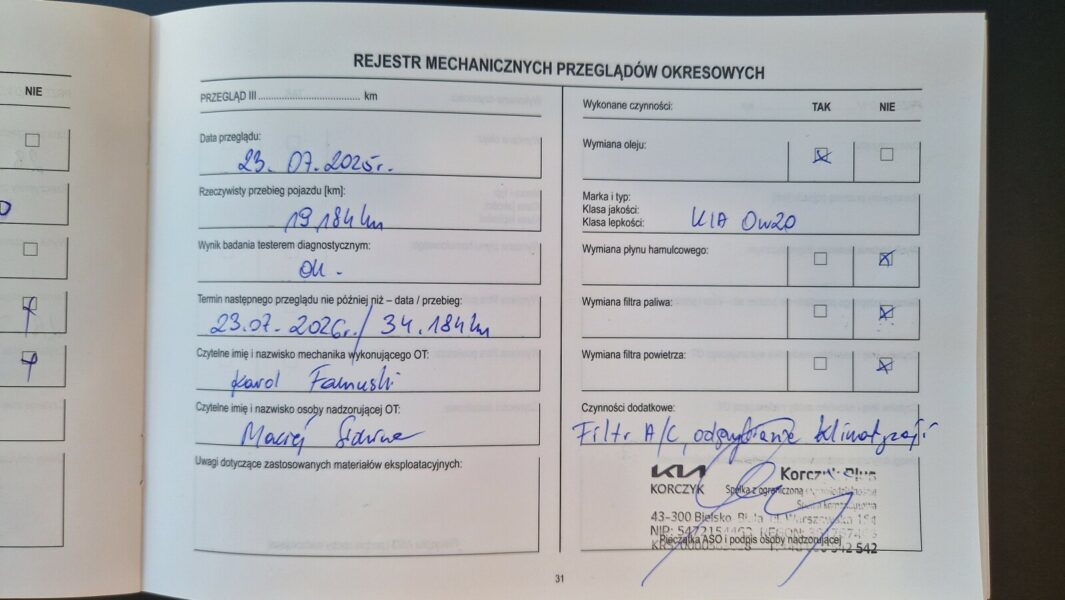 NIE
REJESTR MECHANICZNYCH PRZEGLĄDÓW OKRESOWYCH
PRZEGLĄD III .................................... km
Data przeglądu:
23. 07. 2025r.
Rzeczywisty przebieg pojazdu [km]:
19 184 km
Wynik badania testerem diagnostycznym:
OK.
Termin następnego przeglądu nie później niż – data / przebieg:
23.07.2026r. / 34.184 km
Czytelne imię i nazwisko mechanika wykonującego OT:
Karol
Czytelne imię i nazwisko osoby nadzorującej OT:
Maciej
Uwagi dotyczące zastosowanych materiałów eksploatacyjnych:
Wykonane czynności: TAK NIE
Wymiana oleju:
Marka i typ:
Klasa jakości:
Klasa lepkości:
KIA 0W20
Wymiana płynu hamulcowego:
Wymiana filtra paliwa:
Wymiana filtra powietrza:
Czynności dodatkowe:
Filtr A/C, odgrzybianie klimatyzacji
KIA Korczyk Plus
KORCZYK Spółka z ograniczoną
43-300 Bielsko
NIP:
Pieczątka ASO i podpis osoby nadzorującej
542
31